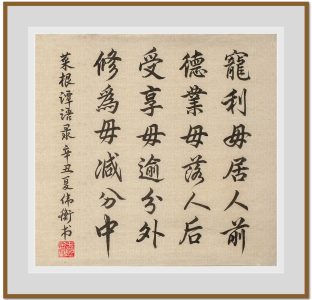 寵利毋居人前
德業毋落人后
受享毋逾分外
修為毋減分中
菜根譚語录辛丑夏伟衡书